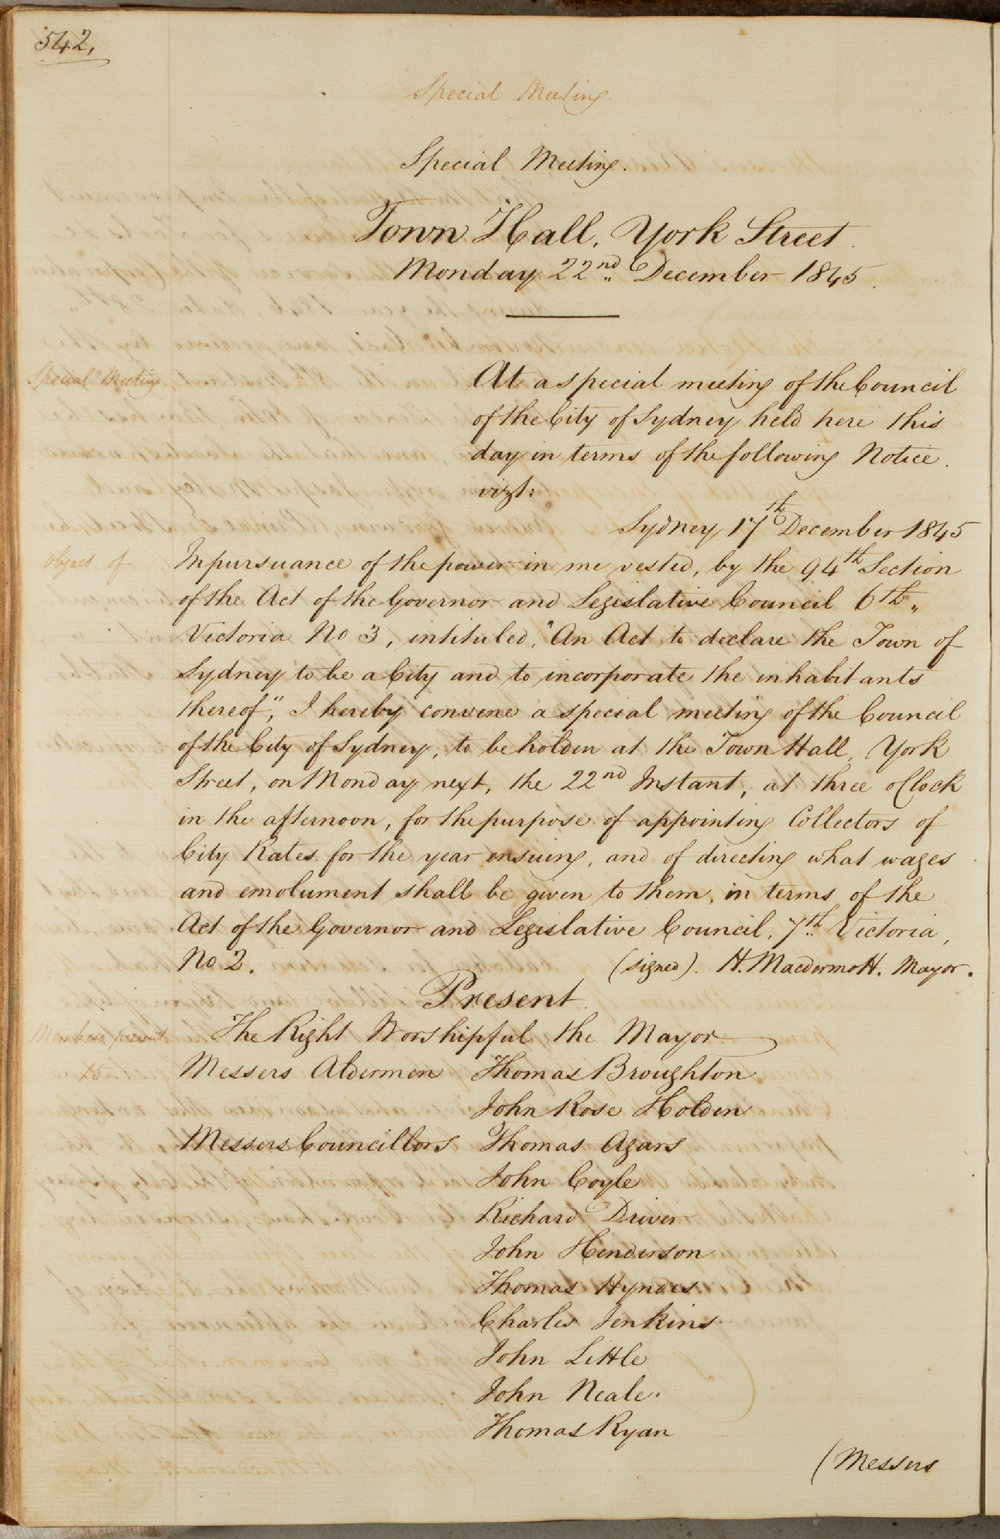 542,
Special Meeting.
Special Meeting.
Town Hall, York Street.
Monday 22nd.. December 1845.
Special Meeting
At a special meeting of the Council
of the City of Sydney held here this
day in terms of the following Notice.
vizt:
Sydney 17th December 1845
object of
In pursuance of the power in me vested, by the 94th Section
of the Act of the Governor and Legislative Council 6th..
Victoria No 3, intituled, "An Act to declare the Town of
Sydney to be a City and to incorporate the inhabitants
thereof", I hereby convene a special meeting of the Council
of the City of Sydney, to be holden at the Town Hall, York
Street, on Monday next, the 22nd Instant, at three oClock
in the afternoon, for the purpose of appointing Collectors of
City Rates for the year ensuing, and of directing what wages
and emolument shall be given to them, in terms of the
Act of the Governor and Legislative Council, 7th Victoria,
No 2.
(signed). H. Macdermott. Mayor.
Present.
Members present
15
The Right Worshipful the Mayor
Messers Aldermen Thomas Broughton
John Rose Holden
Messers Councillors Thomas Agars
John Coyle
Richard Driver
John Henderson
Thomas Hyndes
Charles Jenkins
John Little
John Neale.
Thomas Ryan
(Messers